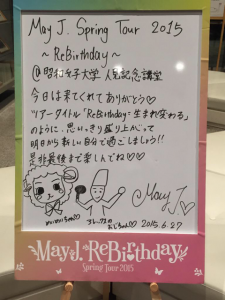 May J. Spring Tour 2015
~ReBirthday~
@昭和女子大学 人見記念講堂
今日は来てくれてありがとう♡
ツアータイトル「ReBirthday:生まれ変わる」
のように、思いっきり盛り上がって
明日から新しい自分で過ごしましょう!!
是非最後まで楽しんでね♡♡
mimiちゃん♡
おじちゃん♡
May J.
2015.6.27
May J. ReBirthday
Spring Tour 2015